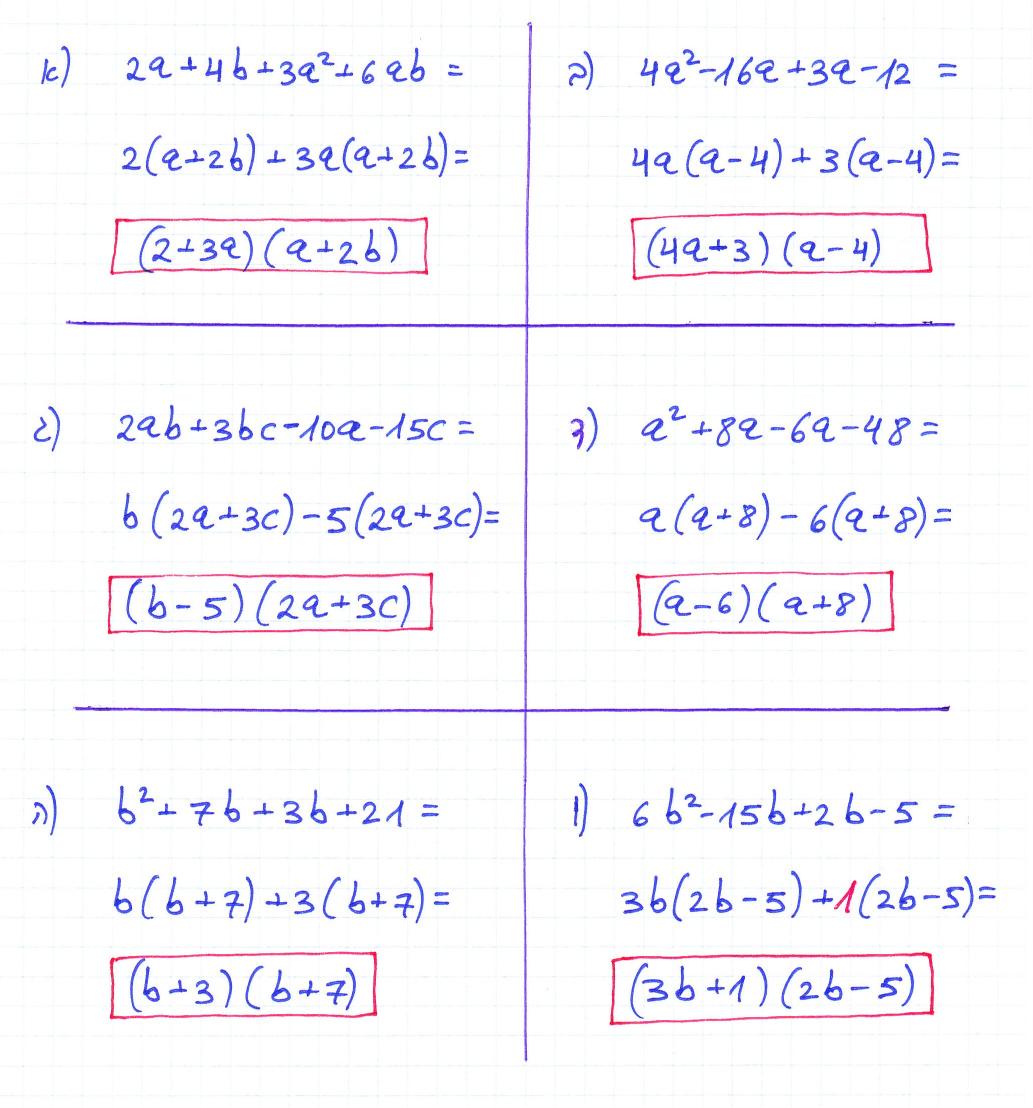 א) 2a+4b+3a²+6ab =
2(a+2b)+3a(a+2b)=
(2+3a)(a+2b)
ב) 4a²-16a+3a-12 =
4a(a-4)+3(a-4)=
(4a+3)(a-4)
ג) 2ab+3bc-10a-15c =
b(2a+3c)-5(2a+3c)=
(b-5)(2a+3c)
ד) a²+8a-6a-48 =
a(a+8)-6(a+8)=
(a-6)(a+8)
ה) b²+7b+3b+21 =
b(b+7)+3(b+7)=
(b+3)(b+7)
ו) 6b²-15b+2b-5 =
3b(2b-5)+1(2b-5)=
(3b+1)(2b-5)